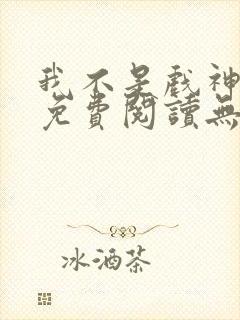 我不是戲神
免費閱讀無
冰酒茶